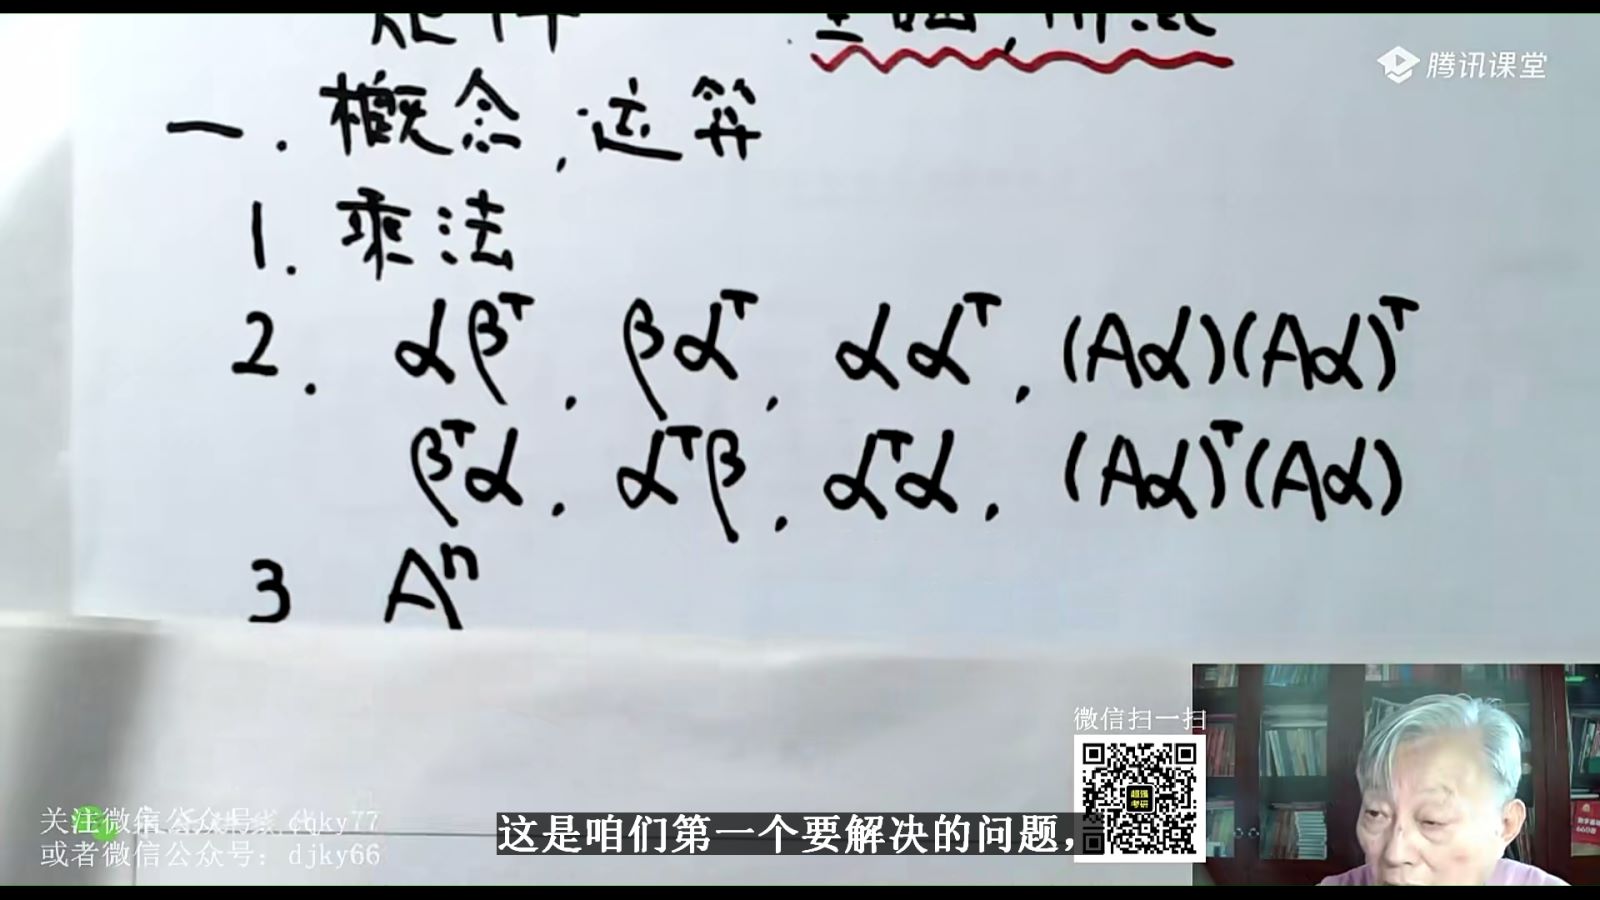 腾讯课堂
一. 概念, 运算
1. 乘法
2. αβᵀ, βαᵀ, ααᵀ, (Aα)(Aα)ᵀ
βᵀα, αᵀβ, αᵀα, (Aα)ᵀ(Aα)
3 Aⁿ
微信扫一扫
超强
考研
关注微信公众号: cqky77
或者微信公众号: djky66
这是咱们第一个要解决的问题,